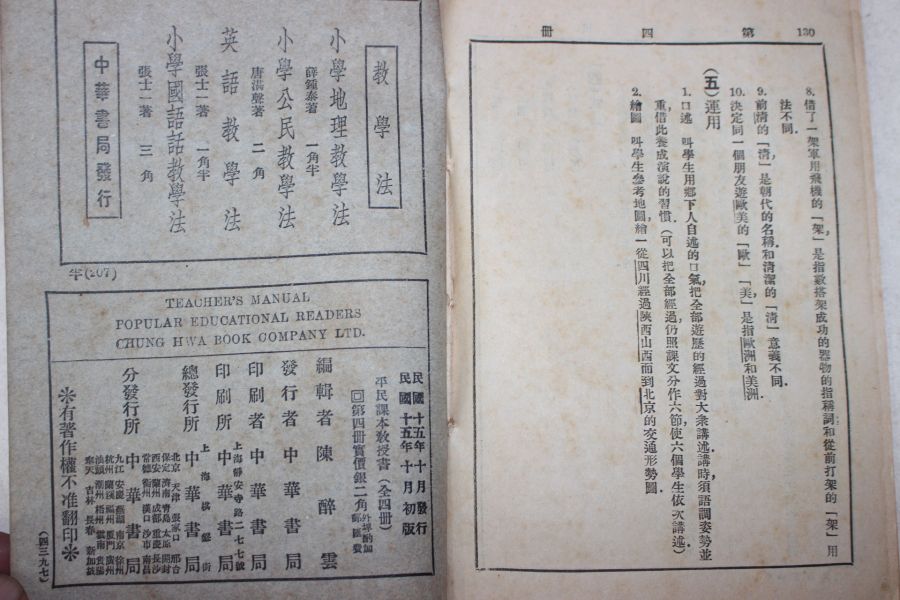 130
第四册
8. 借了一架軍用飛機的「架」,是指數搭架成功的器物的指稱詞和從前打架的「架」用
法不同.
9. 前清的「清」,是朝代的名稱和清潔的「清」意義不同.
10. 決定同一個朋友遊歐美的「歐」「美」,是指歐洲和美洲.
(五)運用
1. 口述 叫學生用鄉下人自述的口氣,把全部遊歷的經過對大衆講述.講時須語調姿勢並
重借此養成演說的習慣.(可以把全部經過,仍照課文分作六節使六個學生依次講述)
2. 繪圖 叫學生參考地圖,繪一從四川經過陝西山西而到北京的交通形勢圖.
教學法
小學地理教學法
薛鍾泰著 一角半
小學公民教學法
唐湛聲著 二角
英語教學法
張士一著 一角半
小學國語話教學法
張士一著 三角
中華書局發行
半(207)
TEACHER'S MANUAL
POPULAR EDUCATIONAL READERS
CHUNG HWA BOOK COMPANY LTD.
民國十五年十月發行
民國十五年十月初版
平民課本教授書(全四冊)
第四冊實價銀二角
外埠酌加郵匯費
編輯者 陳醉雲
發行者 中華書局
印刷者 中華書局
上海靜安寺路二七七號
印刷所 中華書局
上海棋盤街
總發行所 中華書局
分發行所 中華書局
北京 天津 張家口 邢台
保定 濟南 青島 太原 開封
西安 蘭州 成都 重慶 長沙
常德 衡州 漢口 沙市 南昌
九江 安慶 蕪湖 南京 徐州
杭州 蘭谿 福州 廈門 廣州
汕頭 潮州 梧州 雲南
奉天 吉林 長春 新加坡
※有著作權不准翻印※
(四三九七)